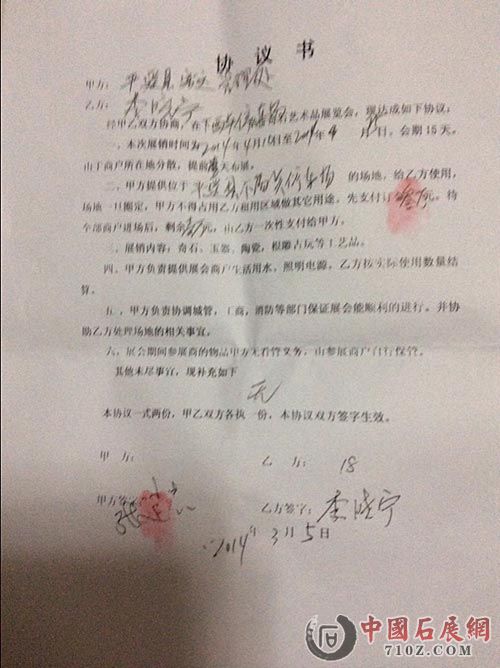 协 议 书
甲方：平遥县 管理处
乙方：李晓宁
经甲乙双方协商，在下西关停车场 石艺术品展览会，现达成如下协议：
一、本次展销时间为2014年4月1日至2014年4月 日。会期15天。
由于商户所在地分散，提前 天布展。
二、甲方提供位于平遥县下西关停车场的场地，给乙方使用，
场地一旦圈定，甲方不得占用乙方租用区域做其它用途，先支付订金 元。待
全部商户进场后，剩余 元，由乙方一次性支付给甲方。
三、展销内容：奇石、玉器、陶瓷，根雕古玩等工艺品。
四、甲方负责提供展会商户生活用水，照明电源。乙方按实际使用数量结
算。
五、甲方负责协调城管，工商，消防等部门保证展会能顺利的进行。并协
助乙方处理场地的相关事宜。
六、展会期间参展商的物品甲方无看管义务，由参展商户自行保管。
其他未尽事宜，现补充如下
无
本协议一式两份，甲乙双方各执一份，本协议双方签字生效。
甲 方： 乙 方： 18
甲方签字： 张 乙方签字：李晓宁
2014年3月5日
中國石展網
710Z.COM